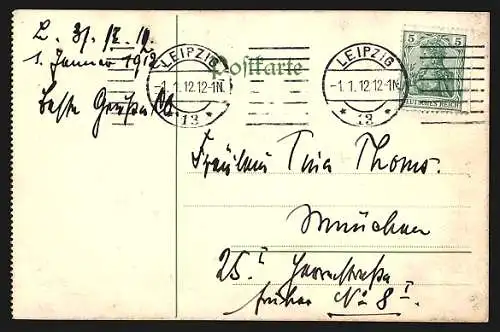 L. 31. 12. 12
1. Januar 1912
Beste Grüße
Postkarte
LEIPZIG
-1.1.12.12-1N.
* 13 *
LEIPZIG
-1.1.12.12-1N.
* 13 *
5 5
DEUTSCHES REICH
Fräulein Tina Thoms.
München
25 I Herrnstraße
früher No 8 I